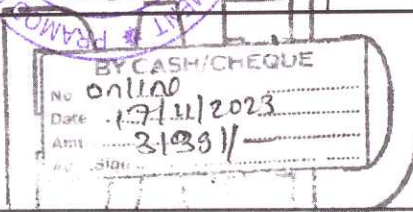 PRAMO
BY CASH/CHEQUE
No online
Date 17/11/2023
Amt 31391/-
Sign